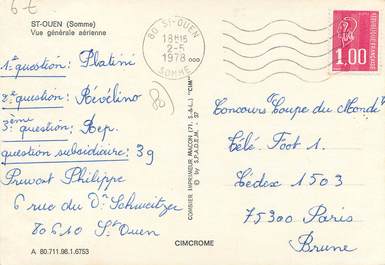 6 €
ST-OUEN (Somme)
Vue générale aérienne
80 ST-OUEN
18H15
2-5
1978
SOMME
REPUBLIQUE FRANÇAISE
1,00
1ère question : Platini
2e question : Révélino
3ème question : Rep.
question subsidiaire : 39
Pruvost Philippe
6 rue du Dr Schweitzer
80610 St Ouen
80
COMBIER IMPRIMEUR MACON (71. S.-&-L.) "CIM"
© by S.P.A.D.E.M. - 97
Concours "Coupe du Monde"
Télé-Foot 1.
Cédex 1503
75300 Paris
Brune
CIMCROME
A 80.711.98.1.6753